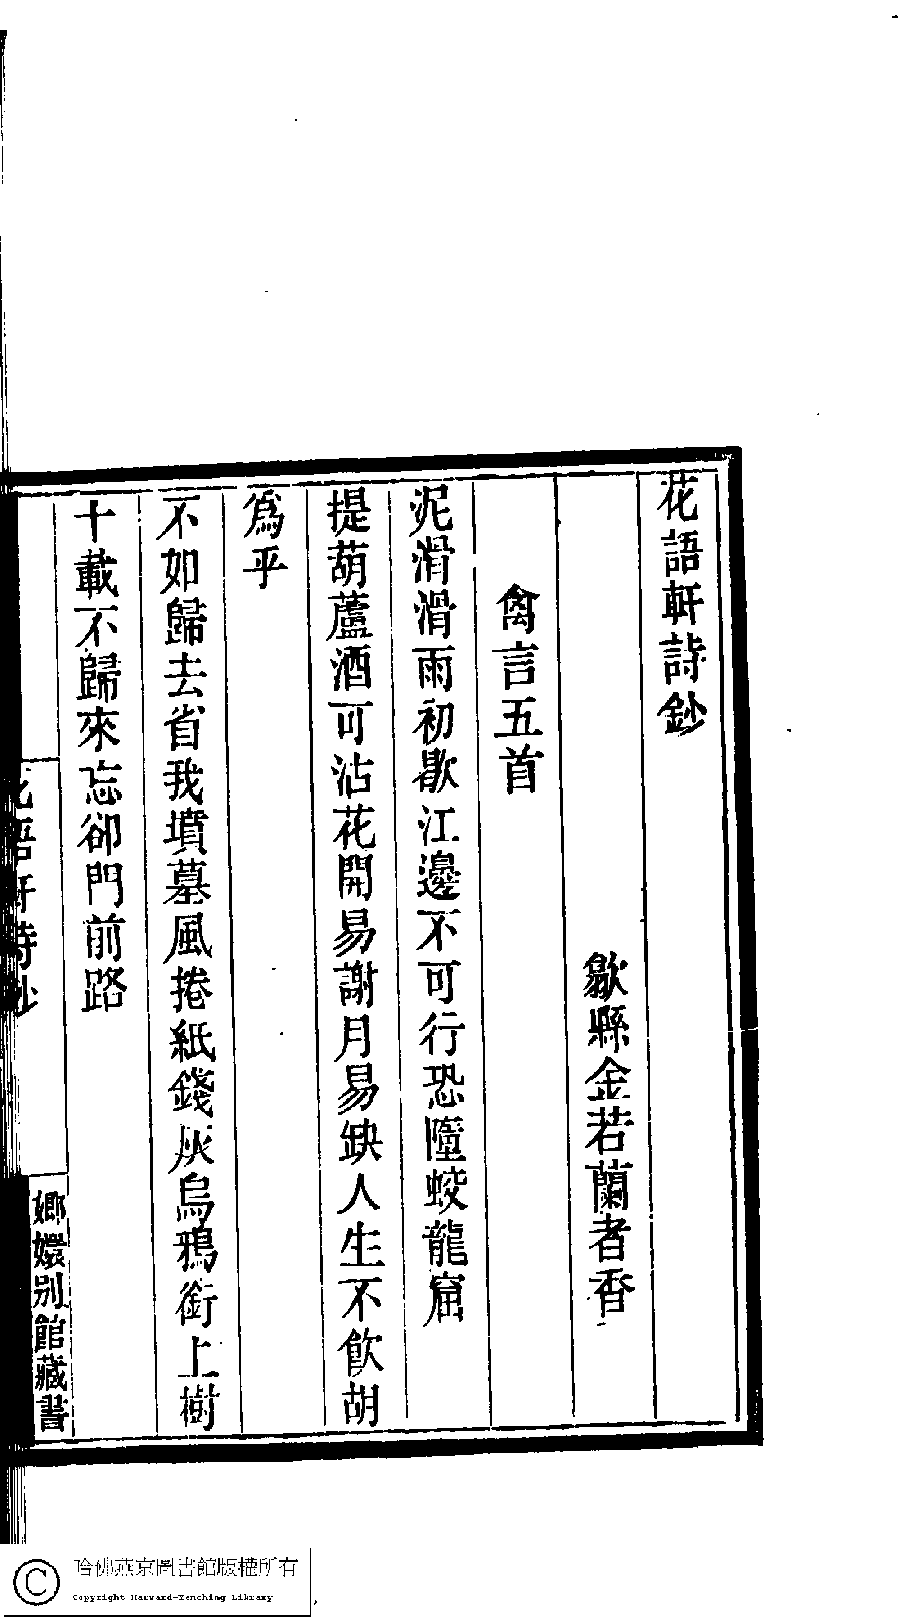 花語軒詩鈔
歙縣金若蘭者香
禽言五首
泥滑滑雨初歇江邊不可行恐墮蛟龍窟
提葫蘆酒可沽花開易謝月易缺人生不飲胡
爲乎
不如歸去省我墳墓風捲紙錢灰烏鴉銜上樹
十載不歸來忘卻門前路
花語軒詩鈔
嫏嬛別館藏書
哈佛燕京圖書館版權所有
Copyright Harvard-Yenching Library